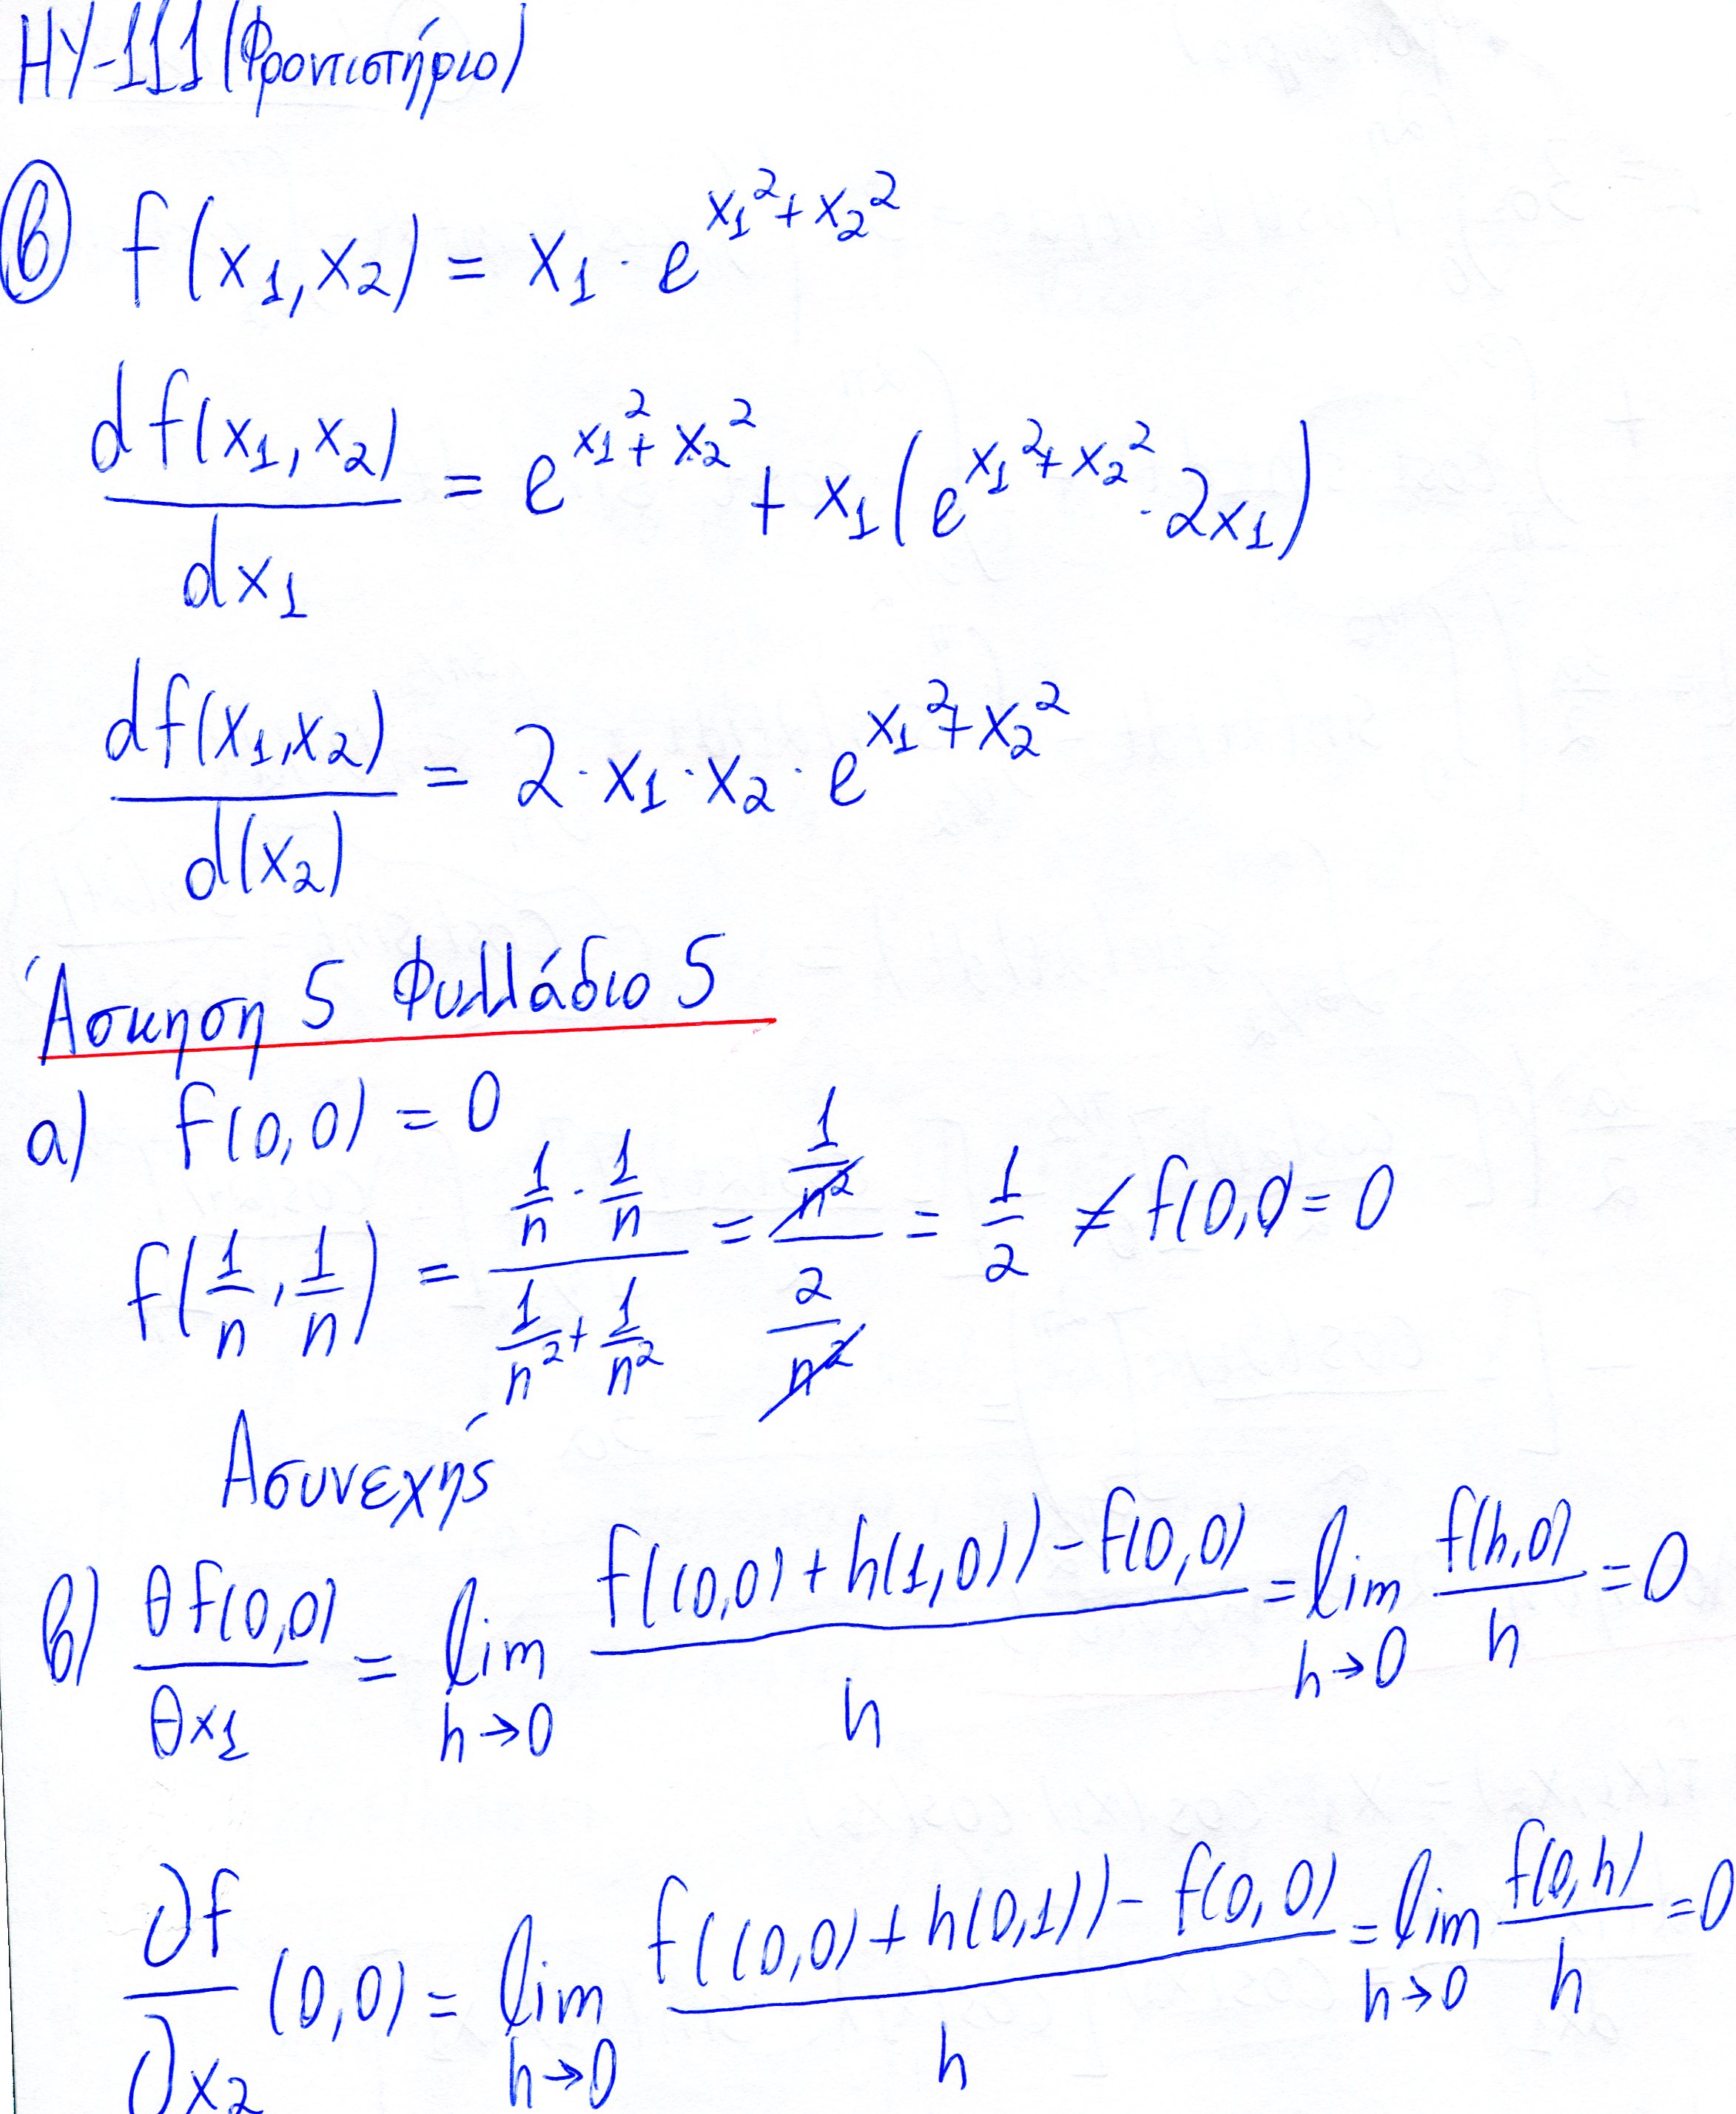 ΗΥ-111 (Φροντιστήριο)
β) f(x₁,x₂) = x₁ · e^(x₁²+x₂²)
df(x₁,x₂)/dx₁ = e^(x₁²+x₂²) + x₁(e^(x₁²+x₂²) · 2x₁)
df(x₁,x₂)/d(x₂) = 2·x₁·x₂·e^(x₁²+x₂²)
Άσκηση 5 Φυλλάδιο 5
α) f(0,0) = 0
f(1/n, 1/n) = (1/n · 1/n)/(1/n² + 1/n²) = (1/n²)/(2/n²) = 1/2 ≠ f(0,0) = 0
Ασυνεχής
β) θf(0,0)/θx₁ = lim h→0 (f((0,0)+h(1,0)) - f(0,0))/h = lim h→0 f(h,0)/h = 0
∂f/∂x₂ (0,0) = lim h→0 (f((0,0)+h(0,1)) - f(0,0))/h = lim h→0 f(0,h)/h = 0